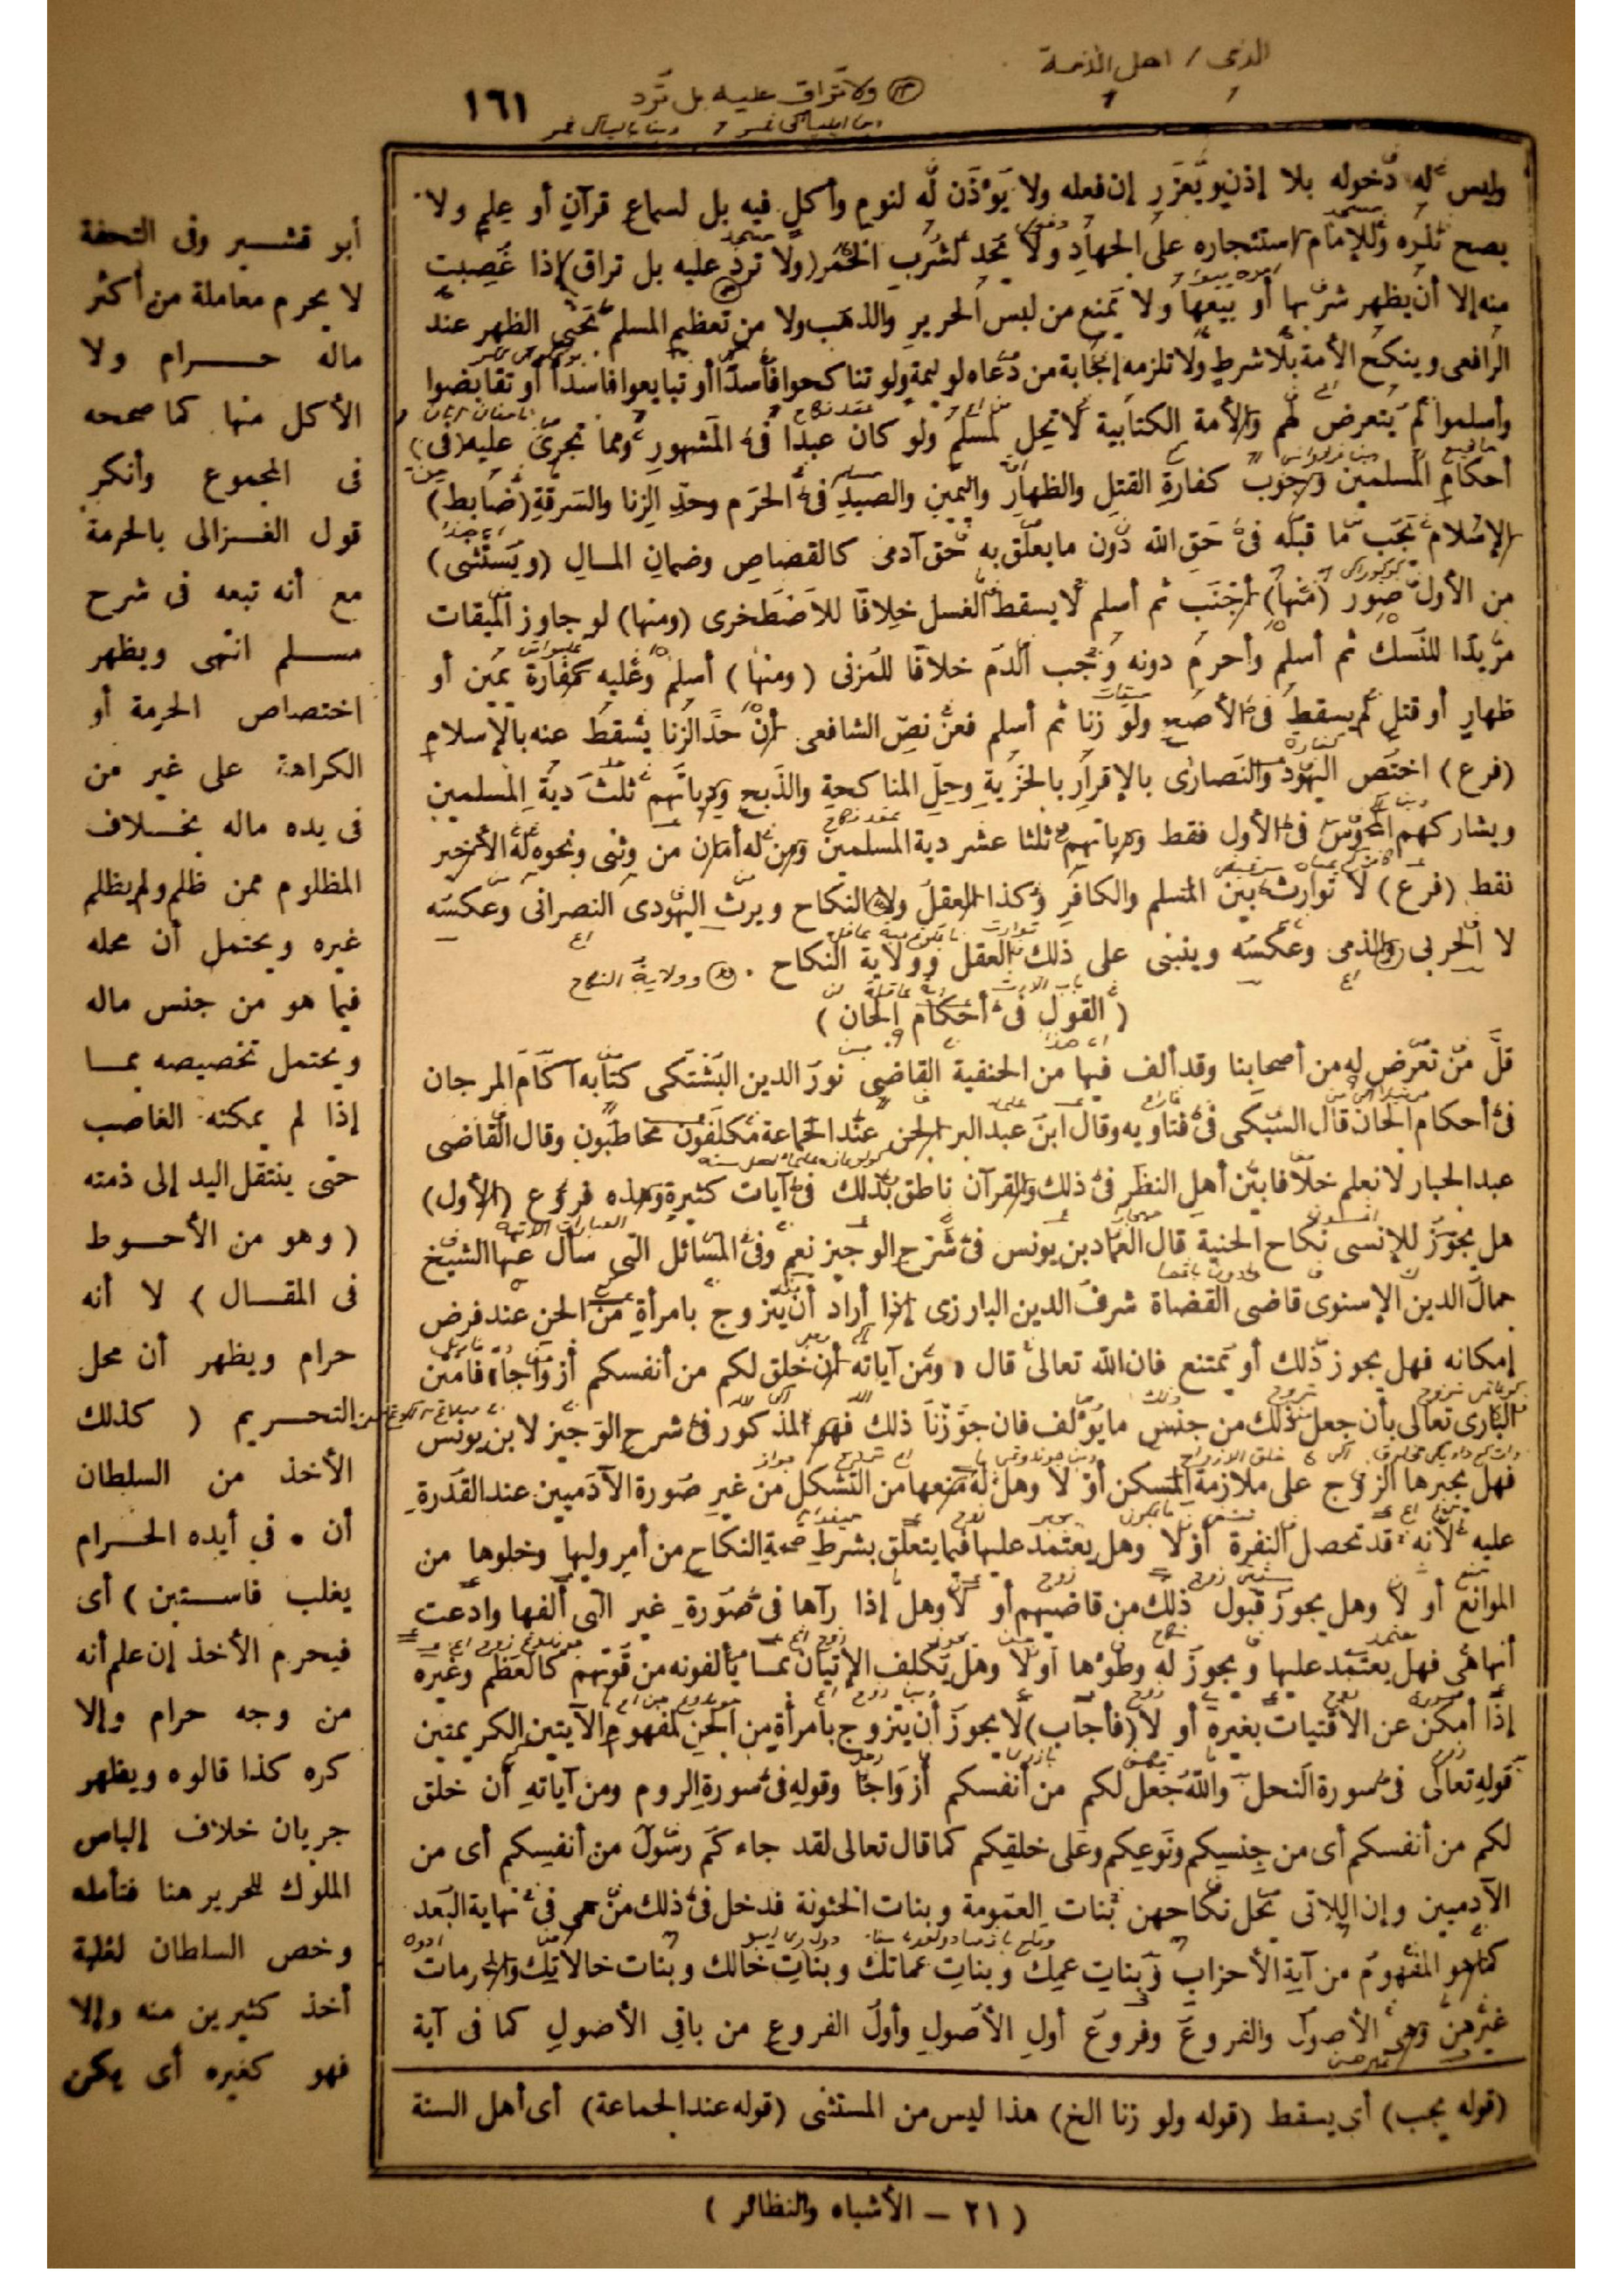 الذمى / اهل الذمة
ولا تراق عليه بل ترد
١٦١
وليس له دخوله بلا إذن ويعزر إن فعله ولا يؤذن له لنوم وأكل فيه بل لسماع قرآن أو علم ولا
يصح نذره وللإمام استئجاره على الجهاد ولا يحد لشرب الخمر (ولا ترد عليه بل تراق) إذا غصبت
منه إلا أن يظهر شربها أو بيعها ولا يمنع من لبس الحرير والذهب ولا من تعظيم المسلم بحنى الظهر عند
الرافعى وينكح الأمة بلا شرط ولا تلزمه إجابة من دعاه لوليمة ولو تناكحوا فاسدا أو تبايعوا فاسدا أو تقابضوا
وأسلموا لم يتعرض لهم والأمة الكتابية لا تحل لمسلم ولو كان عبدا فى المشهور ومما تجرى عليه (فى)
أحكام المسلمين وجوب كفارة القتل والظهار واليمين والصيد فى الحرم وحد الزنا والسرقة (ضابط)
الإسلام يجب ما قبله فى حق الله دون ما يعلق به حق آدمى كالقصاص وضمان المال (ويستثنى)
من الأول صور (منها) أجنب ثم أسلم لا يسقط الغسل خلافا للاصطخرى (ومنها) لو جاوز الميقات
مريدا للنسك ثم أسلم وأحرم دونه وجب الدم خلافا للمزنى (ومنها) أسلم وعليه كفارة يمين أو
ظهار أو قتل لم يسقط فى الأصح ولو زنا ثم أسلم فعن نص الشافعى أن حد الزنا يسقط عنه بالإسلام
(فرع) اختص اليهود والنصارى بالإقرار بالجزية وحل المناكحة والذبح ودياتهم ثلث دية المسلمين
ويشاركهم المجوس فى الأول فقط ودياتهم ثلثا عشر دية المسلمين ومن له أمان من وثنى ونحوه له الأخير
فقط (فرع) لا توارث بين المسلم والكافر وكذا العقل ولا النكاح ويرث اليهودى النصرانى وعكسه
لا الحربى والذمى وعكسه وينبنى على ذلك العقل وولاية النكاح .
وولاية النكاح
( القول فى أحكام الجان )
قل من تعرض له من أصحابنا وقد ألف فيها من الحنفية القاضى نور الدين البشتكى كتابه آكام المرجان
فى أحكام الجان قال السبكى فى فتاويه وقال ابن عبد البر الجن عند الجماعة مكلفون مخاطبون وقال القاضى
عبد الجبار لا نعلم خلافا بين أهل النظر فى ذلك والقرآن ناطق بذلك فى آيات كثيرة وهذه فروع (الأول)
هل يجوز للإنسى نكاح الجنية قال العماد بن يونس فى شرح الوجيز نعم وفى المسائل التى سأل عنها الشيخ
جمال الدين الإسنوى قاضى القضاة شرف الدين البارزى إذا أراد أن يتزوج بامرأة من الجن عند فرض
إمكانه فهل يجوز ذلك أو يمتنع فان الله تعالى قال « ومن آياته أن خلق لكم من أنفسكم أزواجا» فامتن
البارى تعالى بأن جعل ذلك من جنس ما يؤلف فان جوزنا ذلك فهو المذكور فى شرح الوجيز لابن يونس
فهل يجبرها الزوج على ملازمة المسكن أو لا وهل له منعها من التشكل من غير صورة الآدميين عند القدرة
عليه لأنه قد تحصل النفرة أو لا وهل يعتمد عليها فيما يتعلق بشرط صحة النكاح من أمر وليها وخلوها من
الموانع أو لا وهل يجوز قبول ذلك من قاضيهم أو لا وهل إذا رآها فى صورة غير التى ألفها وادعت
أنها هى فهل يعتمد عليها ويجوز له وطؤها أو لا وهل يكلف الإتيان بما يألفونه من قوتهم كالعظم وغيره
إذا أمكن عن الاقتيات بغيره أو لا (فأجاب) لا يجوز أن يتزوج بامرأة من الجن لمفهوم الآيتين الكريمتين
قوله تعالى فى سورة النحل والله جعل لكم من أنفسكم أزواجا وقوله فى سورة الروم ومن آياته أن خلق
لكم من أنفسكم أى من جنسكم ونوعكم وعلى خلقكم كما قال تعالى لقد جاءكم رسول من أنفسكم أى من
الآدميين وإن اللاتى تحل نكاحهن بنات العمومة وبنات الخئونة فدخل فى ذلك من هى فى نهاية البعد
كما هو المفهوم من آية الأحزاب وبنات عمك وبنات عماتك وبنات خالك وبنات خالاتك والمحرمات
غيرهن وهى الأصول والفروع وفروع أول الأصول وأول الفروع من باقى الأصول كما فى آية
(قوله يجب) أى يسقط (قوله ولو زنا الخ) هذا ليس من المستثنى (قوله عند الجماعة) أى أهل السنة
أبو قشير وفى التحفة
لا يحرم معاملة من أكثر
ماله حرام ولا
الأكل منها كما صححه
فى المجموع وأنكر
قول الغزالى بالحرمة
مع أنه تبعه فى شرح
مسلم انتهى ويظهر
اختصاص الحرمة أو
الكراهة على غير من
فى يده ماله بخلاف
المظلوم ممن ظلم ولم يظلم
غيره ويحتمل أن محله
فيما هو من جنس ماله
ويحتمل تخصيصه بما
إذا لم يمكنه الغاصب
حتى ينتقل اليد إلى ذمته
( وهو من الأحوط
فى المقال ) لا أنه
حرام ويظهر أن محل
التحريم ( كذلك
الأخذ من السلطان
أن • في أيده الحرام
يغلب فاستبن ) أى
فيحرم الأخذ إن علم أنه
من وجه حرام وإلا
كره كذا قالوه ويظهر
جريان خلاف إلباس
الملوك للحرير هنا فتأمله
وخص السلطان لغلبة
أخذ كثيرين منه وإلا
فهو كغيره أى يكن
( ٢١ – الأشباه والنظائر )